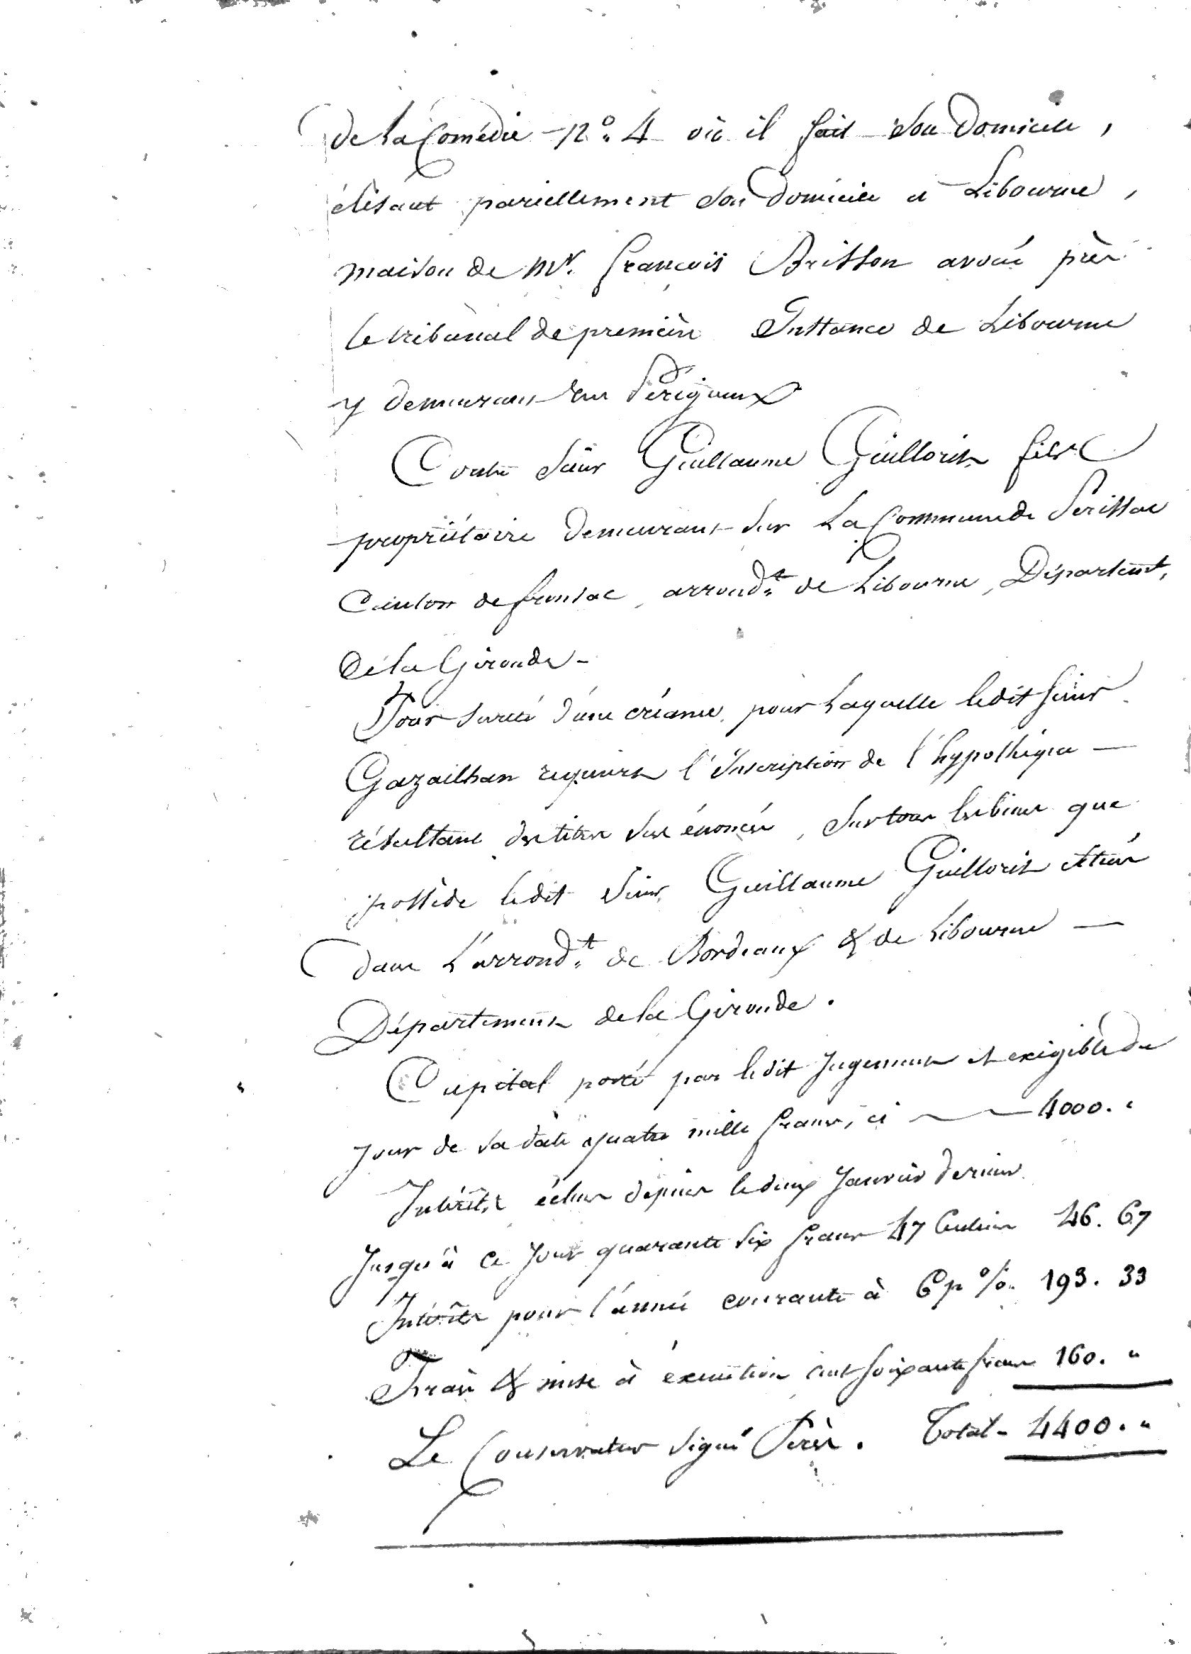 de la Comédie n°. 4 où il fait son Domicile,
élisant pareillement son Domicile à Libourne,
maison de Mr. françois Brisson avoué près
le tribunal de première Instance de Libourne
y demeurant rue Périgueux
Contre Sieur Guillaume Guillorit fils
propriétaire demeurant sur La Commune de Périssac
Canton de fronsac, arrondt. de Libourne, Départemt.
de la Gironde -
Pour sureté d'une créance, pour Laquelle ledit sieur
Gazailhan requiert l'Inscription de l'hypothèque —
résultant des titres sus énoncés, sur tous les biens que
possède ledit sieur Guillaume Guillorit situés
dans L'arrondt. de Bordeaux & de Libourne —
Département de la Gironde.
Capital porté par ledit Jugement et exigible du
jour de sa date quatre mille francs, ci — 4000. "
Intérêts échus depuis le deux Janvier dernier
Jusqu'à ce Jour quarante six francs 47 Centimes 46. 67
Intérêts pour l'année courante à 6 p %. 193. 33
Frais & mise à exécution cent soixante francs 160. "
Le Conservateur signé Perès. Total - 4400. "